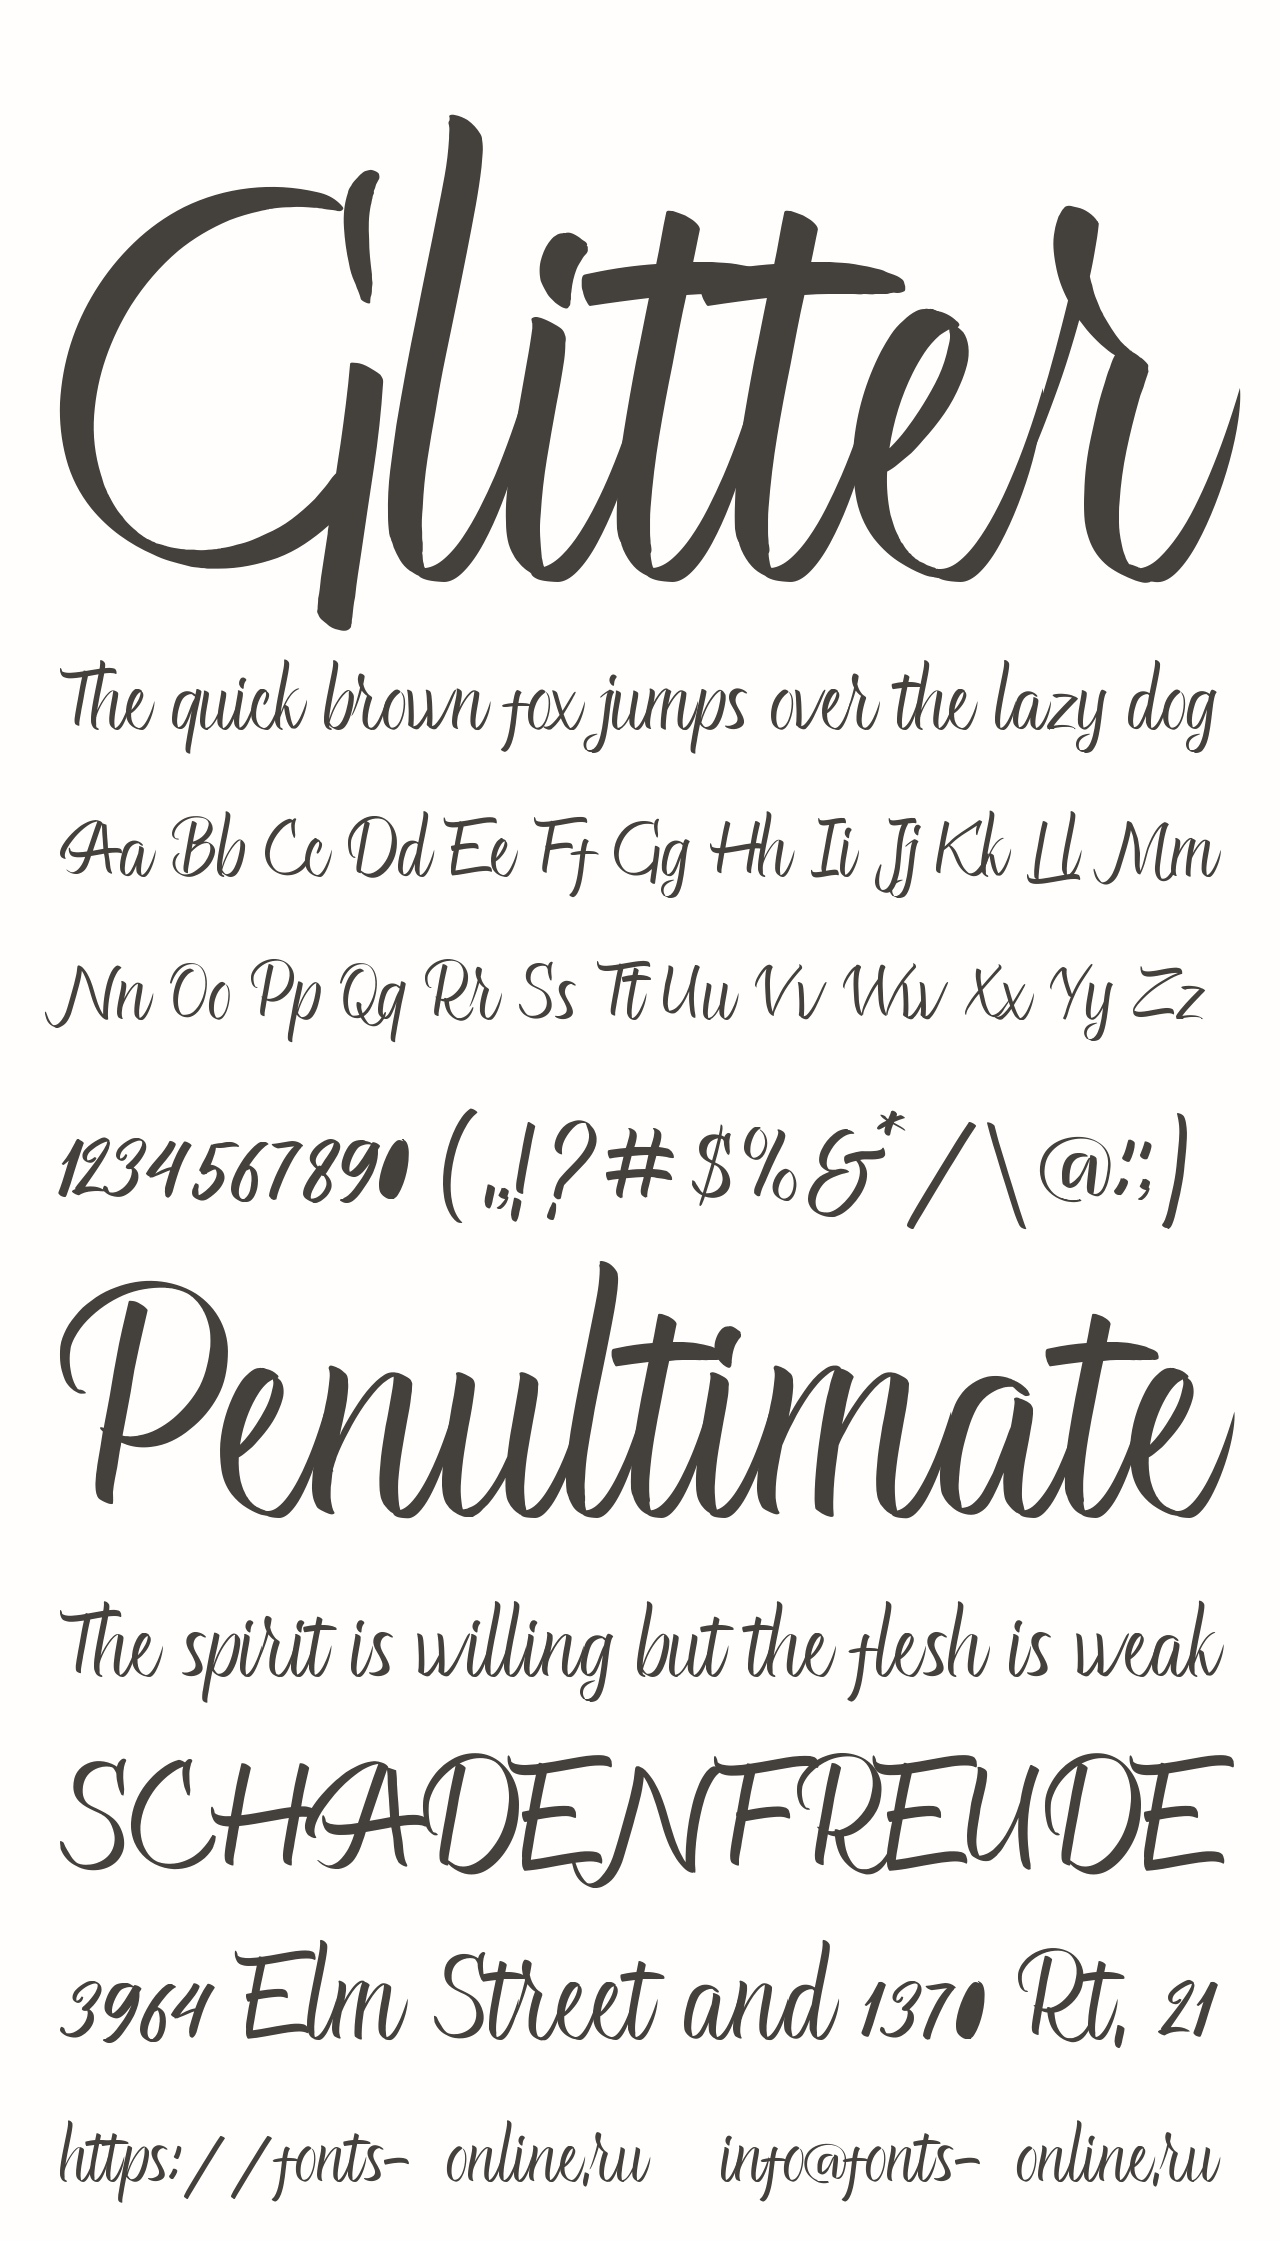 Glitter
The quick brown fox jumps over the lazy dog
Aa Bb Cc Dd Ee Ff Gg Hh Ii Jj Kk Ll Mm
Nn Oo Pp Qq Rr Ss Tt Uu Vv Ww Xx Yy Zz
1234567890 (.,!?#$%&*/\@:;)
Penultimate
The spirit is willing but the flesh is weak
SCHADENFREUDE
3964 Elm Street and 1370 Rt. 21
https://fonts- online.ru info@fonts- online.ru